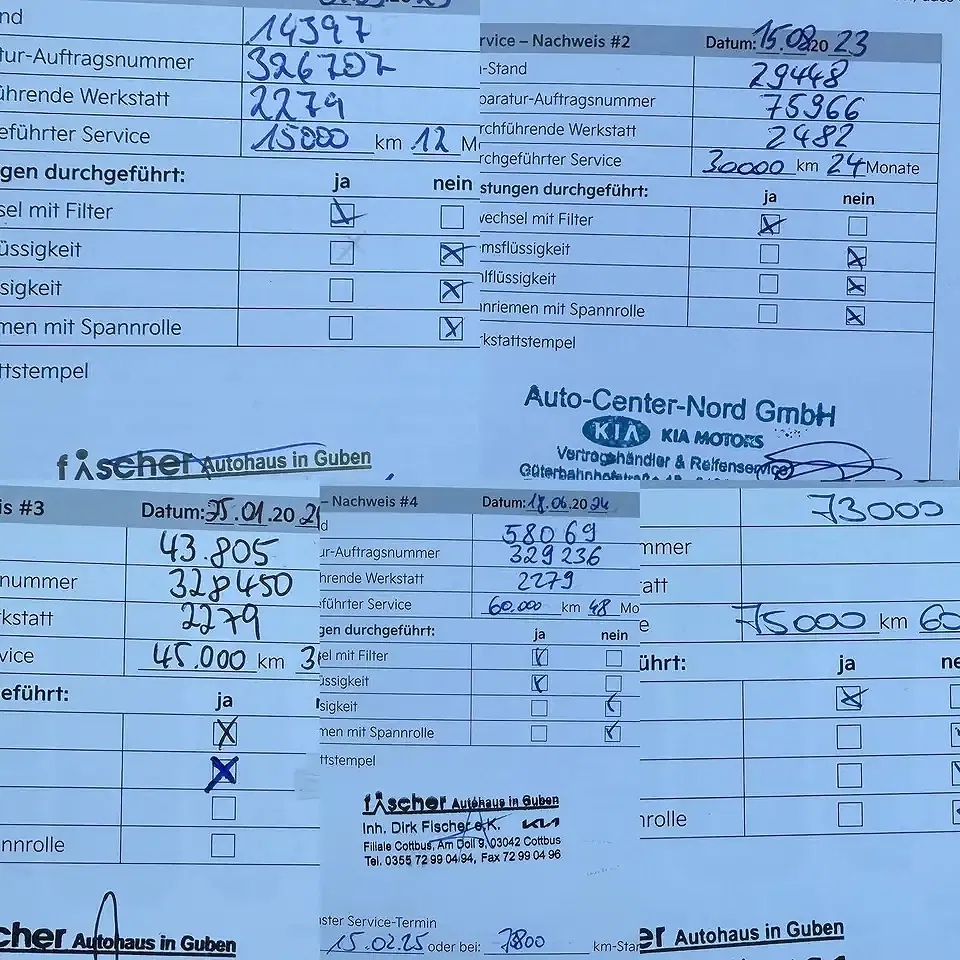 nd 14397
tur-Auftragsnummer 326707
ührende Werkstatt 2279
eführter Service 15000 km 12 M
gen durchgeführt:
ja nein
sel mit Filter
üssigkeit
sigkeit
men mit Spannrolle
ttstempel
fischer Autohaus in Guben
rvice – Nachweis #2 Datum: 15.08.20 23
-Stand 29448
paratur-Auftragsnummer 75966
rchführende Werkstatt 2482
rchgeführter Service 30000 km 24 Monate
stungen durchgeführt:
ja nein
wechsel mit Filter
msflüssigkeit
lflüssigkeit
nriemen mit Spannrolle
kstattstempel
Auto-Center-Nord GmbH
KIA KIA MOTORS
Vertragshändler & Reifenservice
is #3 Datum: 25.01.20 2
43.805
nummer 328450
kstatt 2279
vice 45.000 km 3
eführt:
ja
nnrolle
cher Autohaus in Guben
– Nachweis #4 Datum: 18.06.20 24
d 58069
ur-Auftragsnummer 329236
hrende Werkstatt 2279
eführter Service 60.000 km 48 Mo
gen durchgeführt:
ja nein
el mit Filter
üssigkeit
sigkeit
men mit Spannrolle
ttstempel
fischer Autohaus in Guben
Inh. Dirk Fischer e.K. KIA
Filiale Cottbus, Am Doll 9, 03042 Cottbus
Tel. 0355 72 99 04 94, Fax 72 99 04 96
ster Service-Termin
15.02.25 oder bei: km-Sta
73000
mmer
att
e 75000 km 60
ührt:
ja ne
rolle
er Autohaus in Guben